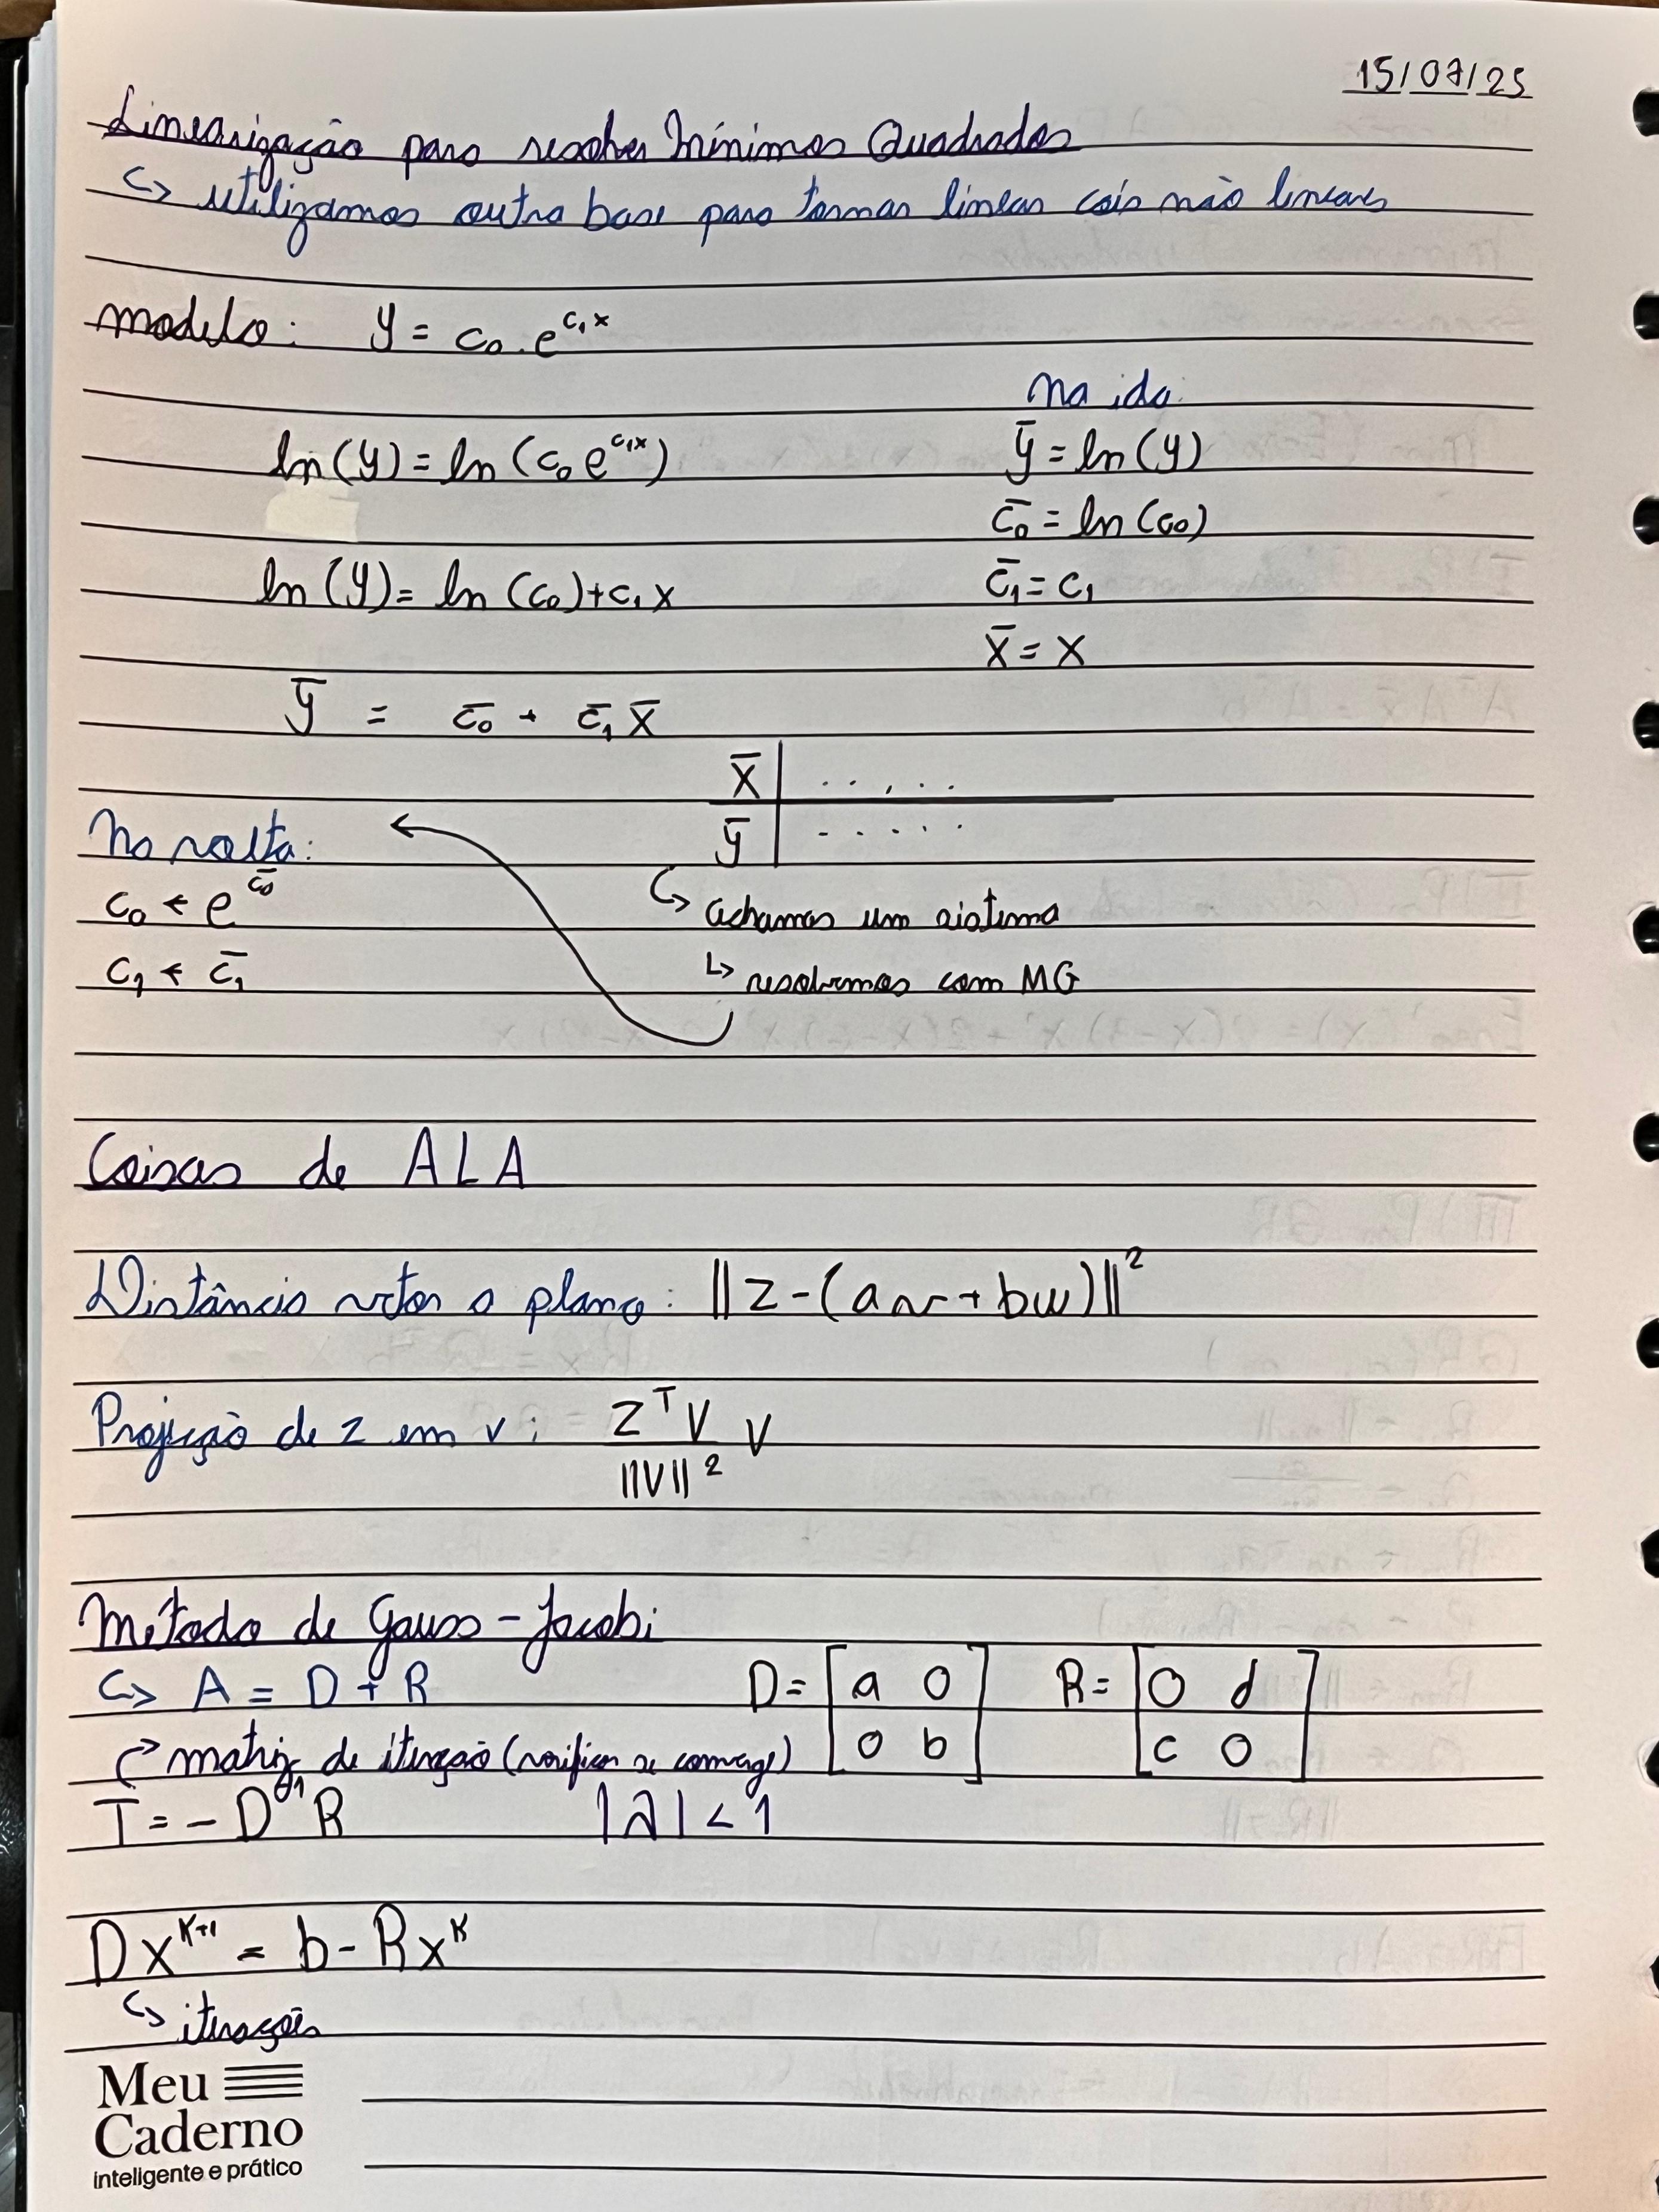 15/07/25
Linearização para resolver Mínimos Quadrados
↳ utilizamos outra base para tornar linear cois não lineares
modelo: y = c₀ . e^{c₁x}
na ida:
ln(y) = ln(c₀e^{c₁x})
ȳ = ln(y)
c̄₀ = ln(c₀)
ln(y) = ln(c₀) + c₁x
c̄₁ = c₁
x̄ = x
ȳ = c̄₀ + c̄₁x̄
x̄ | . . , . .
ȳ | . . . . .
Na volta:
c₀ ← e^{c̄₀}
↳ achamos um sistema
c₁ ← c̄₁
↳ resolvemos com MG
Coisas de ALA
Distância vetor a plano: ||z-(av+bw)||²
Projeção de z em v: \frac{z^T v}{||v||²} v
Método de Gauss-Jacobi
↳ A = D + R
D = [a 0; 0 b] R = [0 d; c 0]
↱ matriz de iteração (verificar se converge)
T = -D⁻¹R |λ| < 1
Dx^{k+1} = b - Rx^k
↳ iterações
Meu
Caderno
inteligente e prático